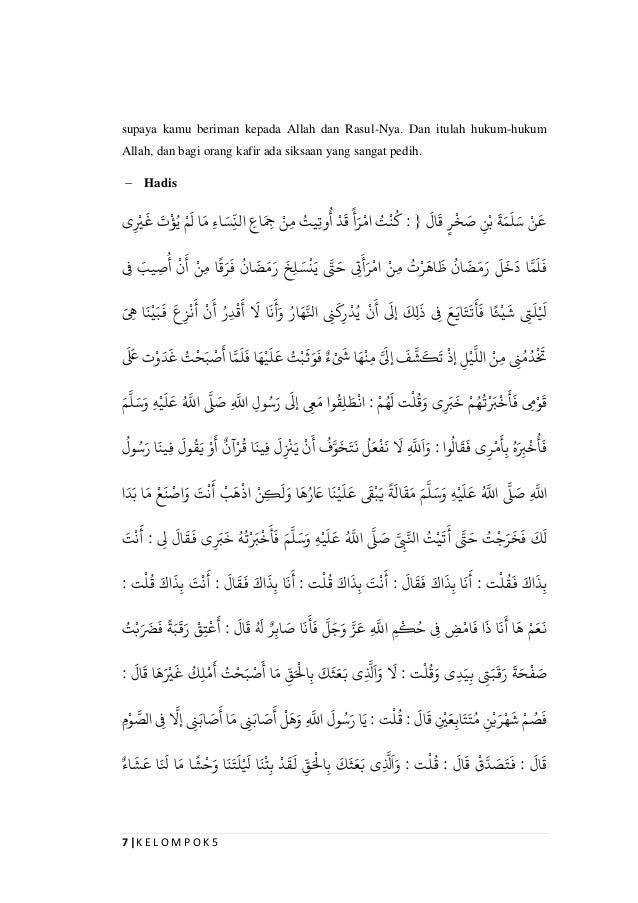 supaya kamu beriman kepada Allah dan Rasul-Nya. Dan itulah hukum-hukum
Allah, dan bagi orang kafir ada siksaan yang sangat pedih.
– Hadis
عَنْ سَلَمَةَ بْنِ صَخْرٍ قَالَ { : كُنْتُ امْرَأً قَدْ أُوتِيتُ مِنْ جِمَاعِ النِّسَاءِ مَا لَمْ يُؤْتَ غَيْرِى
فَلَمَّا دَخَلَ رَمَضَانُ ظَاهَرْتُ مِنْ امْرَأَتِي حَتَّى يَنْسَلِخَ رَمَضَانُ فَرَقًا مِنْ أَنْ أُصِيبَ فِي
لَيْلَتِي شَيْئًا فَأَتَتَايَعَ فِي ذَلِكَ إلَى أَنْ يُدْرِكَنِي النَّهَارُ وَأَنَا لَا أَقْدِرُ أَنْ أَنْزِعَ فَبَيْنَا هِيَ
تَخْدُمُنِي مِنْ اللَّيْلِ إذْ تَكَشَّفَ إلَيَّ مِنْهَا شَيْءٌ فَوَثَبْتُ عَلَيْهَا فَلَمَّا أَصْبَحْتُ غَدَوْت عَلَى
قَوْمِي فَأَخْبَرْتُهُمْ خَبَرِى وَقُلْت لَهُمْ : انْطَلِقُوا مَعِي إلَى رَسُولِ اللَّهِ صَلَّى اللَّهُ عَلَيْهِ وَسَلَّمَ
فَأُخْبِرُهُ بِأَمْرِى فَقَالُوا : وَاَللَّهِ لَا نَفْعَلُ نَتَخَوَّفُ أَنْ يَنْزِلَ فِينَا قُرْآنٌ أَوْ يَقُولَ فِينَا رَسُولُ
اللَّهِ صَلَّى اللَّهُ عَلَيْهِ وَسَلَّمَ مَقَالَةً يَبْقَى عَلَيْنَا عَارُهَا وَلَكِنْ اذْهَبْ أَنْتَ وَاصْنَعْ مَا بَدَا
لَكَ فَخَرَجْتُ حَتَّى أَتَيْتُ النَّبِيَّ صَلَّى اللَّهُ عَلَيْهِ وَسَلَّمَ فَأَخْبَرْتُهُ خَبَرِى فَقَالَ لِي : أَنْتَ
بِذَاكَ فَقُلْت : أَنَا بِذَاكَ فَقَالَ : أَنْتَ بِذَاكَ قُلْت : أَنَا بِذَاكَ فَقَالَ : أَنْتَ بِذَاكَ قُلْت :
نَعَمْ هَا أَنَا ذَا فَامْضِ فِي حُكْمِ اللَّهِ عَزَّ وَجَلَّ فَأَنَا صَابِرٌ لَهُ قَالَ : أَعْتِقْ رَقَبَةً فَضَرَبْتُ
صَفْحَةَ رَقَبَتِي بِيَدِى وَقُلْت : لَا وَاَلَّذِى بَعَثَكَ بِالْحَقِّ مَا أَصْبَحْتُ أَمْلِكُ غَيْرَهَا قَالَ :
فَصُمْ شَهْرَيْنِ مُتَتَابِعَيْنِ قَالَ : قُلْت : يَا رَسُولَ اللَّهِ وَهَلْ أَصَابَنِي مَا أَصَابَنِي إلَّا فِي الصَّوْمِ
قَالَ : فَتَصَدَّقْ قَالَ : قُلْت : وَاَلَّذِى بَعَثَكَ بِالْحَقِّ لَقَدْ بِتْنَا لَيْلَتَنَا وَحْشًا مَا لَنَا عَشَاءٌ
7 | K E L O M P O K 5